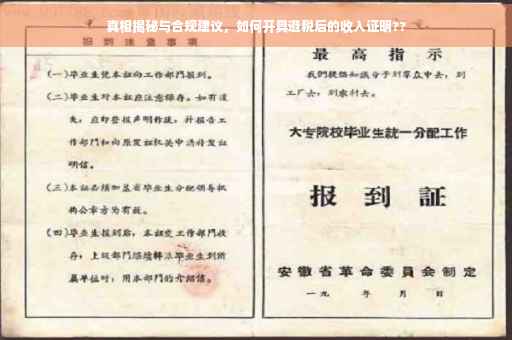 真相揭秘与合规建议，如何开具避税后的收入证明??
报到注意事项
(一)毕业生凭本证向工作部门报到。
(二)毕业生对本证应注意保存。如有遗
失，应即登报声明作废，并报告工
作部门和向原发证机关申请补发证
明信。
(三)本证必须加盖省毕业生分配领导机
构公章方为有效。
(四)毕业生报到后，本证交工作部门收
存；上级部门继续转派毕业生到所
属单位时，用本部门的介绍信。
最高指示
我们提倡知识分子到群众中去，到
工厂去，到农村去。
大专院校毕业生統一分配工作
报到证
安徽省革命委員会制定
一九 年 月 日